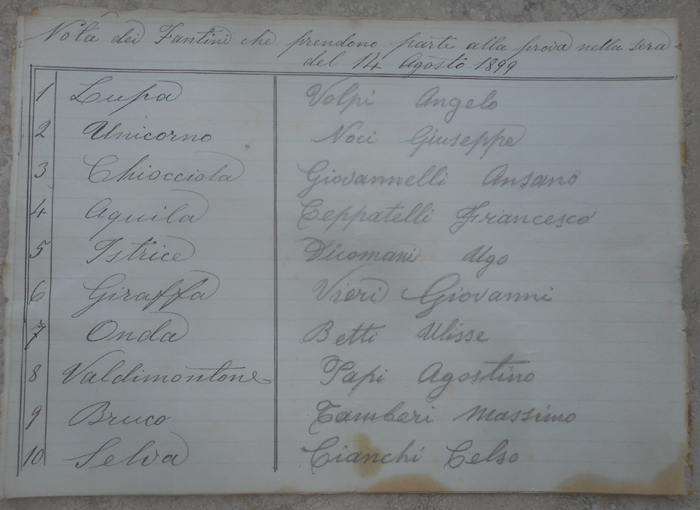 Nota dei Fantini che prendono parte alla prova nella sera
del 14 Agosto 1899
1 Lupa Volpi Angelo
2 Unicorno Noci Giuseppe
3 Chiocciola Giovannelli Ansano
4 Aquila Ceppatelli Francesco
5 Istrice Dicomani Ugo
6 Giraffa Vieri Giovanni
7 Onda Betti Ulisse
8 Valdimontone Papi Agostino
9 Bruco Tamberi Massimo
10 Selva Cianchi Celso